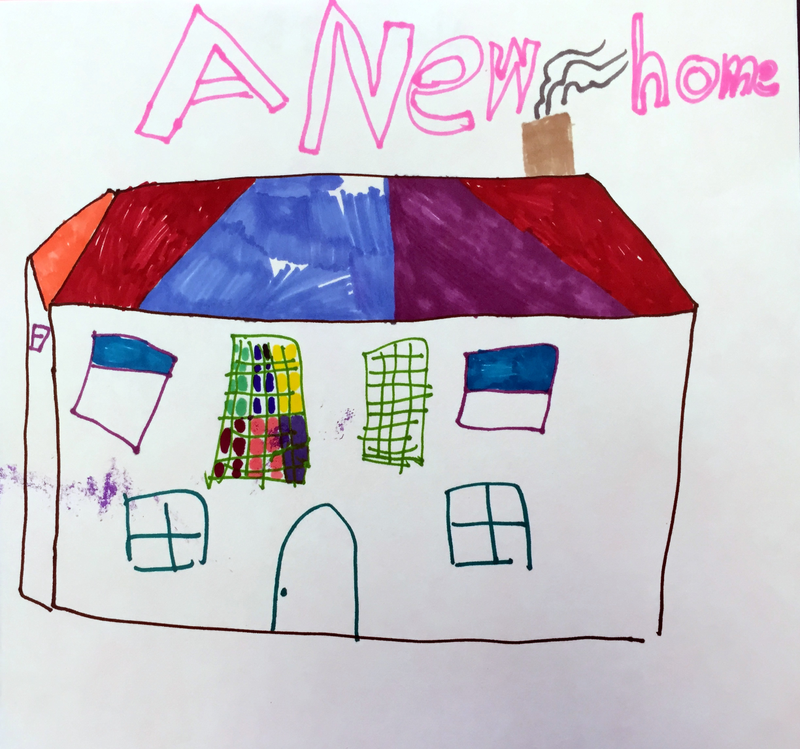 A New home